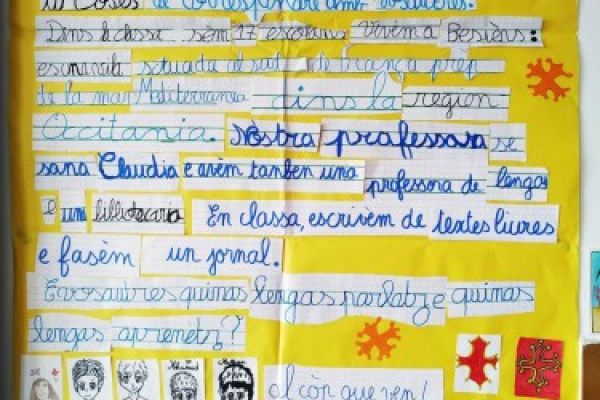 de correspondre amb vosautres.
Dins la classa sèm 17 escolans Vivèm a Besièrs:
es una vila situada al sud de França prèp
de la mar Mediterranea dins la region
Occitania. Nòstra professora se
sona Claudia e avèm tanben una professora de lenga
e um bibliotecaria En classa, escrivèm de textes liures
e fasèm un jornal.
E vosautres quinas lengas parlatz e quinas
lengas aprenètz?
al còp que ven!